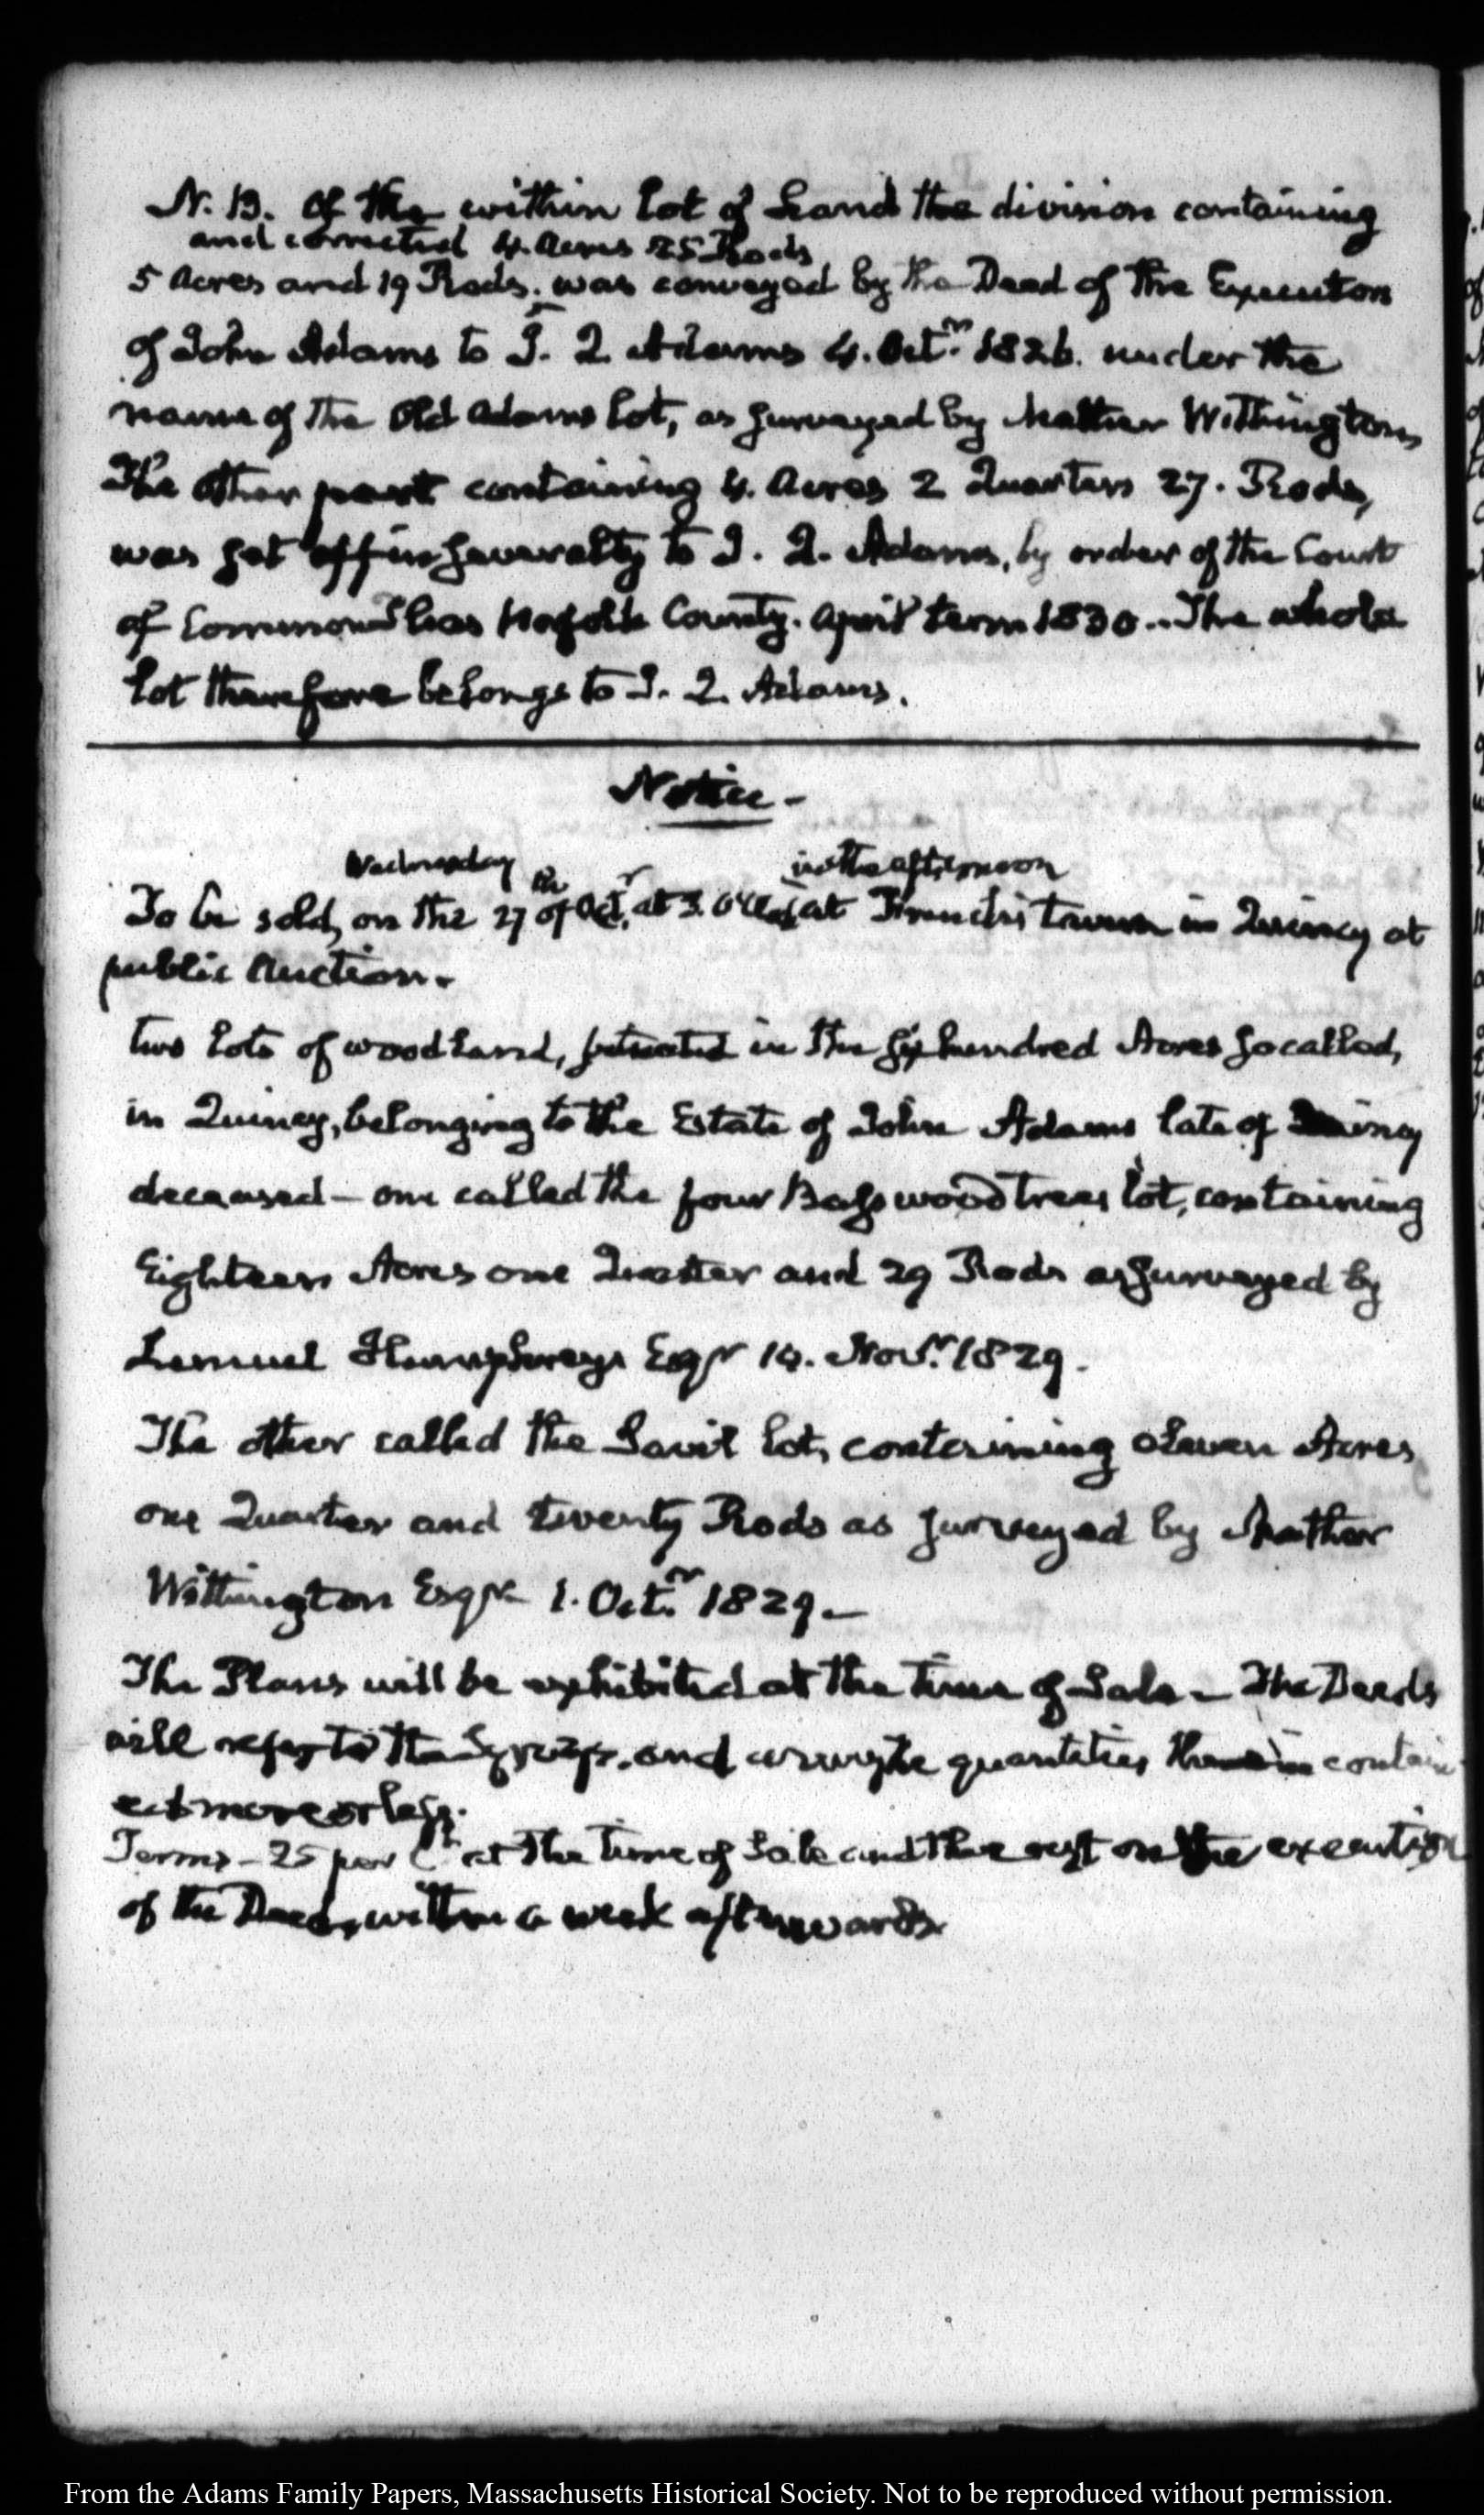 N. B. Of the within lot of Land the division containing
and corrected 4. Acres 25 Rods
5 Acres and 19 Rods. was conveyed by the Deed of the Executors
of John Adams to J. Q. Adams 4. Octr. 1826. under the
name of the Old Adams lot, as surveyed by Mather Withington,
The other part containing 4. Acres 2 Quarters 27. Rods,
was set off in severalty to J. Q. Adams, by order of the Court
of Common Pleas Norfolk County. April term 1830.. The whole
lot therefore belongs to J. Q. Adams.
Notice-
Wednesday in the afternoon
To be sold, on the 27th of Octr. at 3. o'Clock at French's tavern in Quincy at
public Auction.
two lots of woodland, situated in the six hundred Acres so called,
in Quincy, belonging to the Estate of John Adams late of Quincy
deceased - one called the four Basswood trees lot, containing
Eighteen Acres one Quarter and 29 Rods as surveyed by
Lemuel Humphreys Esqr 14. Novr. 1829.
The other called the Savil lot, containing eleven Acres
one Quarter and twenty Rods as surveyed by Mather
Withington Esqr 1. Octr. 1829.-
The Plans will be exhibited at the time of Sale - The Deeds
will refer to the and quantities therein contain
ed more or less.
Terms - 25 per Ct at the time of Sale and the rest on the execution
of the Deeds, within a week afterwards.
From the Adams Family Papers, Massachusetts Historical Society. Not to be reproduced without permission.